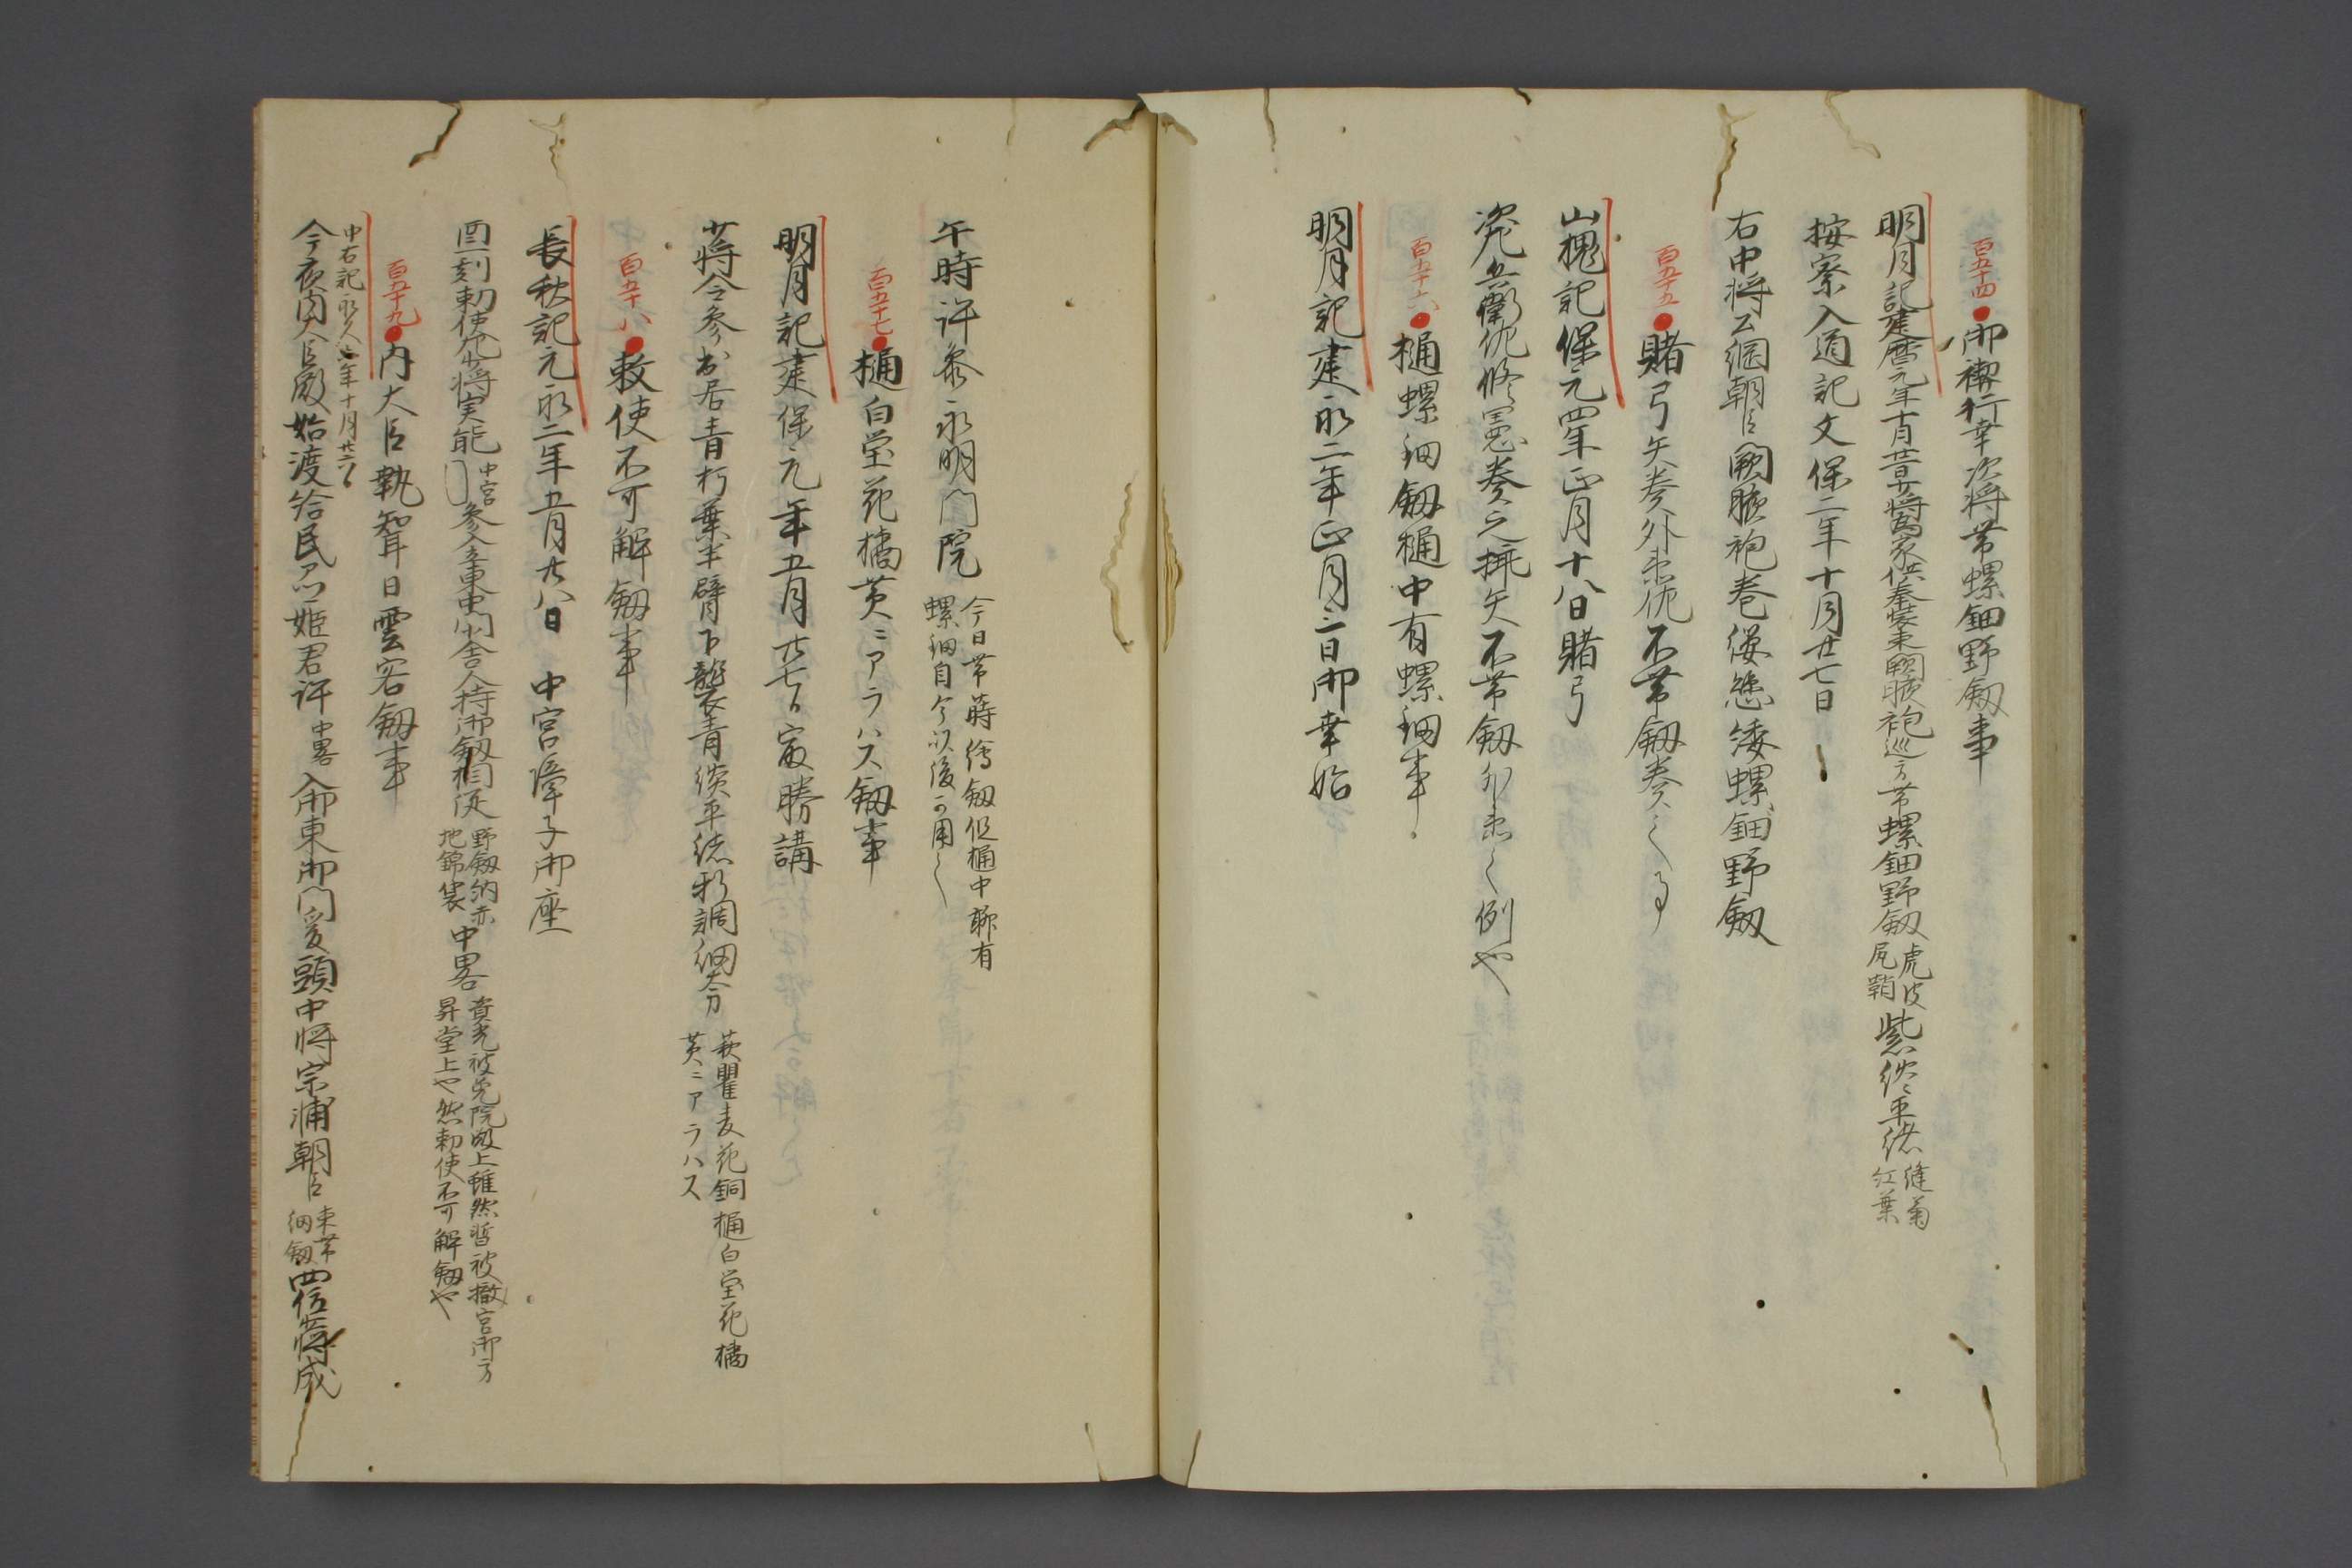 百五十四●御禊行幸次将帯螺鈿野剱事
明月記建暦元年十月廿二日少将為家供奉装束闕腋袍巡方帯螺鈿野剱虎皮尻鞘紫終平緒縫菊紅葉
按察入道記文保二年十月廿七日
右中将公綱朝臣闕腋袍巻纓懸緌螺鈿野剱
百五十五●賭弓矢奏外束仗不帯剱奏之事
山槐記保元四年正月十八日賭弓
右兵衛佐修憲奏之挿矢不帯剱外束之例也
百五十六●樋螺鈿剱樋中有螺鈿事
明月記建永二年正月二日御幸始
午時許参永明門院今日帯蒔絵剱但樋中聊有螺鈿自今以後可用之
百五十七●樋白堂花橘萸ニアラハス剱事
明月記建保元年五月廿七日最勝講
少将令参出居青朽葉半臂下襲青淡平緒形調鈿剱萩瞿麦花銅樋白堂花橘萸ニアラハス
百五十八●敕使不可解剱事
長秋記元永二年五月廿八日 中宮璋子御座
酉一刻勅使左少将実能中宮参入立東中門舎人持御剱相従野剱納赤地錦袋中畧資光被免院殿上雖然暫被撤宮御方昇堂上也然勅使不可解剱也
百五十九●内大臣執聟日雲客剱事
中右記永久六年十月廿六日
今夜内大臣殿始渡給民ア卿姫君許中畧入御東御門爰頭中将宗浦朝臣束帯細剱四位少将成